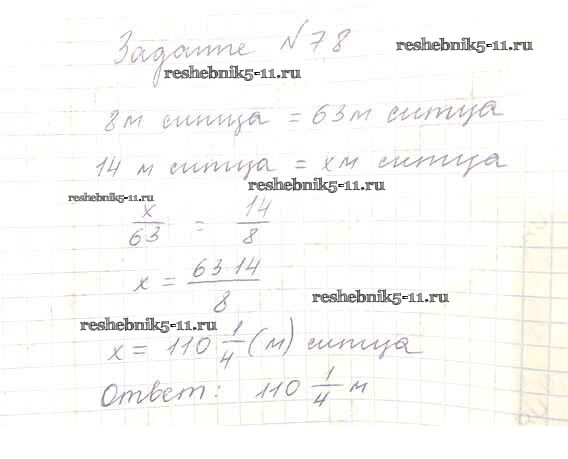 Задание №78
reshebnik5-11.ru
reshebnik5-11.ru
8м ситца = 63м ситца
14 м ситца = х м ситца
reshebnik5-11.ru
reshebnik5-11.ru
x/63 = 14/8
x = 63 14/8
reshebnik5-11.ru
reshebnik5-11.ru
x = 110 1/4 (м) ситца
Ответ: 110 1/4 м